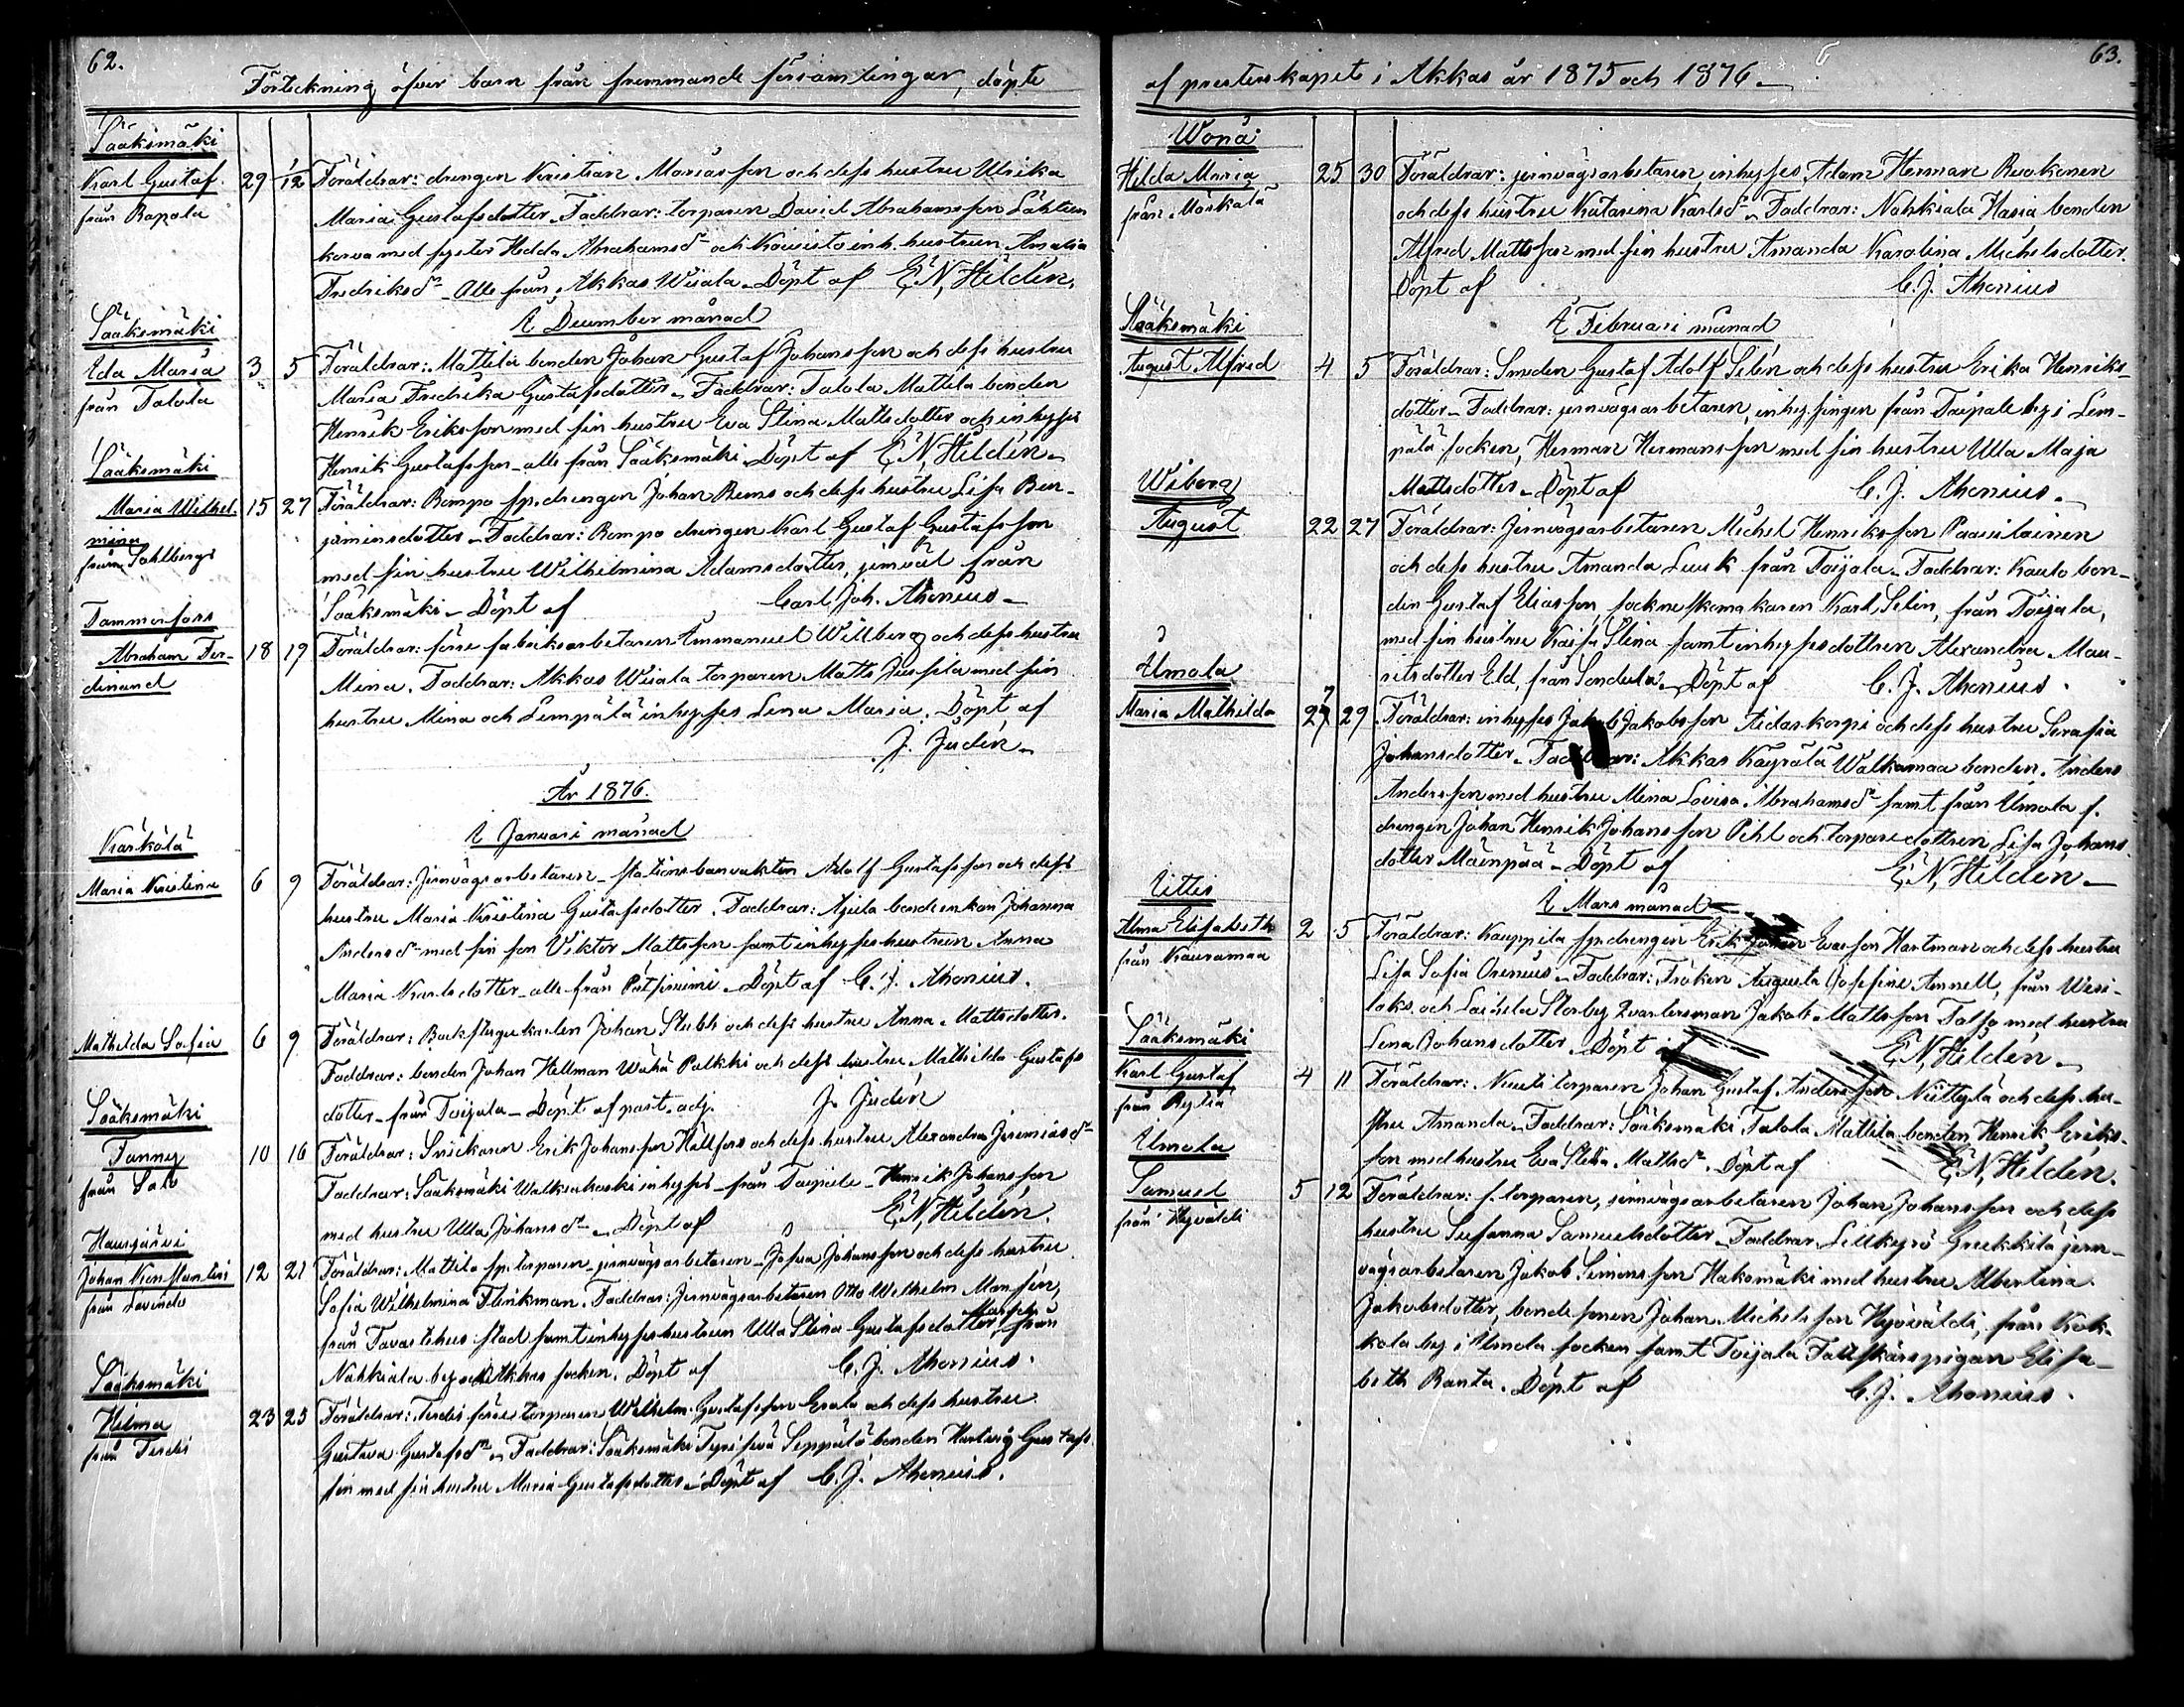 62.
Förteckning öfver barn från fremmande församlingar, döpte
Sääksmäki
Karl Gustaf 29 1/12 Föräldrar: drengen Kristian Mariasson och dess hustru Ulrika
från Rapola Maria Gustafsdotter. Faddrar: torparen David Abrahamsson Lähteen
korva med syster Hedda Abrahamsdr och Kouvisto inh. hustrun Amalia
Fredriksdr alla från Akkas Wiiala. Döpt af E. N. Hildén.
I December månad
Sääksmäki
Eda Maria 3 5 Föräldrar: Mattila bonden Johan Gustaf Johansson och dess hustru
från Talola Maria Fredrika Gustafsdotter. Faddrar: Talola Mattila bonden
Henrik Eriksson med sin hustru Eva Stina Mattsdotter och inhyses
Henrik Gustafsson alla från Sääksmäki. Döpt af E. N. Hildén
Sääksmäki
Maria Wilhel- 15 27 Föräldrar: Rompo sp. drengen Johan Rems och dess hustru Lisa Ben-
mina jaminsdotter. Faddrar: Rompo drengen Karl Gustaf Gustafsson
från Sahlbergs med sin hustru Wilhelmina Adamsdotter, jemväl från
Sääksmäki. Döpt af Carl Joh. Ahonius
Tammerfors
Abraham Fer- 18 19 Föräldrar: förre fabriksarbetaren Emmanuel Willberg och dess hustru
dinand Mina. Faddrar: Akkas Wiiala torparen Matts Jussila med sin
hustru Mina och Lempälä inhyses Lena Maria. Döpt af
J. Judén
År 1876.
I Januari månad
Kärkölä
Maria Kristina 6 9 Föräldrar: Jernvägsarbetaren stationsbanvakten Adolf Gustafsson och dess
hustru Maria Kristina Gustafsdotter. Faddrar: Ajula bondeenkan Johanna
Andersdr med sin son Viktor Mattsson samt inhyseshustrun Anna
Maria Karlsdotter alla från Pätsiniemi. Döpt af C. J. Ahonius.
Mathilda Sofia 6 9 Föräldrar: Backstugukarlen Johan Stubb och dess hustru Anna Mattsdotter.
Faddrar: bonden Johan Hellman Wähä Palkki och dess hustru Mathilda Gustafs
dotter från Toijala. Döpt af past. adj. J. Judén
Sääksmäki
Fanny 10 16 Föräldrar: Snickaren Erik Johansson Hällfors och dess hustru Alexandra Jeremiasdr
från Salo Faddrar: Sääksmäki Walkeakoski inhyses från Taipale Henrik Johansson
med hustru Ulla Johansdr. Döpt af E. N. Hildén.
Hausjärvi
Johan Konstantin 12 21 Föräldrar: Mattila sp. torparen jernvägsarbetaren Josua Johansson och dess hustru
från Sofia Wilhelmina Flinkman. Faddrar: Jernvägsarbetaren Otto Wilhelm Mansén,
från Tavastehus stad samt inhyseshustrun Ulla Stina Gustafsdotter från
Nahkiala by och Akkas socken. Döpt af C. J. Ahonius.
Sääksmäki
Hilma 23 25 Föräldrar: Terdis förre torparen Wilhelm Gustafsson Erola och dess hustru
från Terdis Gustava Gustafsdr. Faddrar: Sääksmäki Seppälä bonden Hartvig Gustafs
son med sin hustru Maria Gustafsdotter. Döpt af C. J. Ahonius.
63.
af presterskapet i Akkas år 1875 och 1876
Wånå
Hilda Maria 25 30 Föräldrar: jernvägsarbetaren, inhyses Adam Herman Ruokonen
från Möskälä och dess hustru Katarina Karlsdr. Faddrar: Nahkiala Hasia bonden
Alfred Mattsson med sin hustru Amanda Karolina Michelsdotter.
Döpt af C. J. Ahonius
I Februari månad
Sääksmäki
August Alfred 4 5 Föräldrar: Smeden Gustaf Adolf Selén och dess hustru Erika Henriks-
dotter. Faddrar: jernvägsarbetaren, inhysingen från Taipale by i Lem-
pälä socken, Herman Hermansson med sin hustru Ulla Maja
Mattsdotter. Döpt af C. J. Ahonius.
Wiborg
August 22 27 Föräldrar: Jernvägsarbetaren Michel Henriksson Paasilainen
och dess hustru Amanda Luuk från Toijala. Faddrar: Kauto bon-
den Gustaf Eliasson, sockneskomakaren Karl Selin, från Toijala,
med sin hustru Kaisa Stina samt inhysesdottren Alexandra Mau-
ritsdotter Eld, från Sondula. Döpt af C. J. Ahonius.
Urdiala
Maria Mathilda 27 29 Föräldrar: inhyses Jakob Jakobsson Aidaskorpi och dess hustru Serafia
Johansdotter. Faddrar: Akkas Käyrälä Walkamaa bonden Anders
Andersson med hustru Mina Lovisa Abrahamsdr samt från Urdiala s.
drengen Johan Henrik Johansson Pihl och torparedottren Lisa Johans
dotter Mäenpää. Döpt af E. N. Hildén
I Mars månad
Iittis
Alma Elisabeth 2 5 Föräldrar: Kauppila sp. drengen Erik Johan Evasson Hartman och dess hustru
från Kauramaa Lisa Sofia Orenius. Faddrar: Fröken Augusta Josefine Amnell, från Wesi-
laks och Laihela Storby Qvartersman Jakob Mattsson Talso med hustru
Lena Johansdotter. Döpt af E. N. Hildén
Sääksmäki
Karl Gustaf 4 11 Föräldrar: Nuuti torparen Johan Gustaf Andersson Niittylä och dess hu-
från Rytiä stru Amanda. Faddrar: Sääksmäki Talola Mattila bonden Henrik Eriks-
son med hustru Eva Stina Mattsdr. Döpt af E. N. Hildén.
Urdiala
Samuel 5 12 Föräldrar: s. torparen, jernvägsarbetaren Johan Johansson och dess
från Hyväldi hustru Susanna Samuelsdotter. Faddrar: Lillkyrö Gnekkilä jern-
vägsarbetaren Jakob Simonsson Hakomäki med hustru Albertina
Jakobsdotter, bondesonen Johan Michelsson Hyöväldi, från Kok-
kola by i Urdiala socken samt Toijala Fältskärspigan Elisa-
beth Ranta. Döpt af C. J. Ahonius.